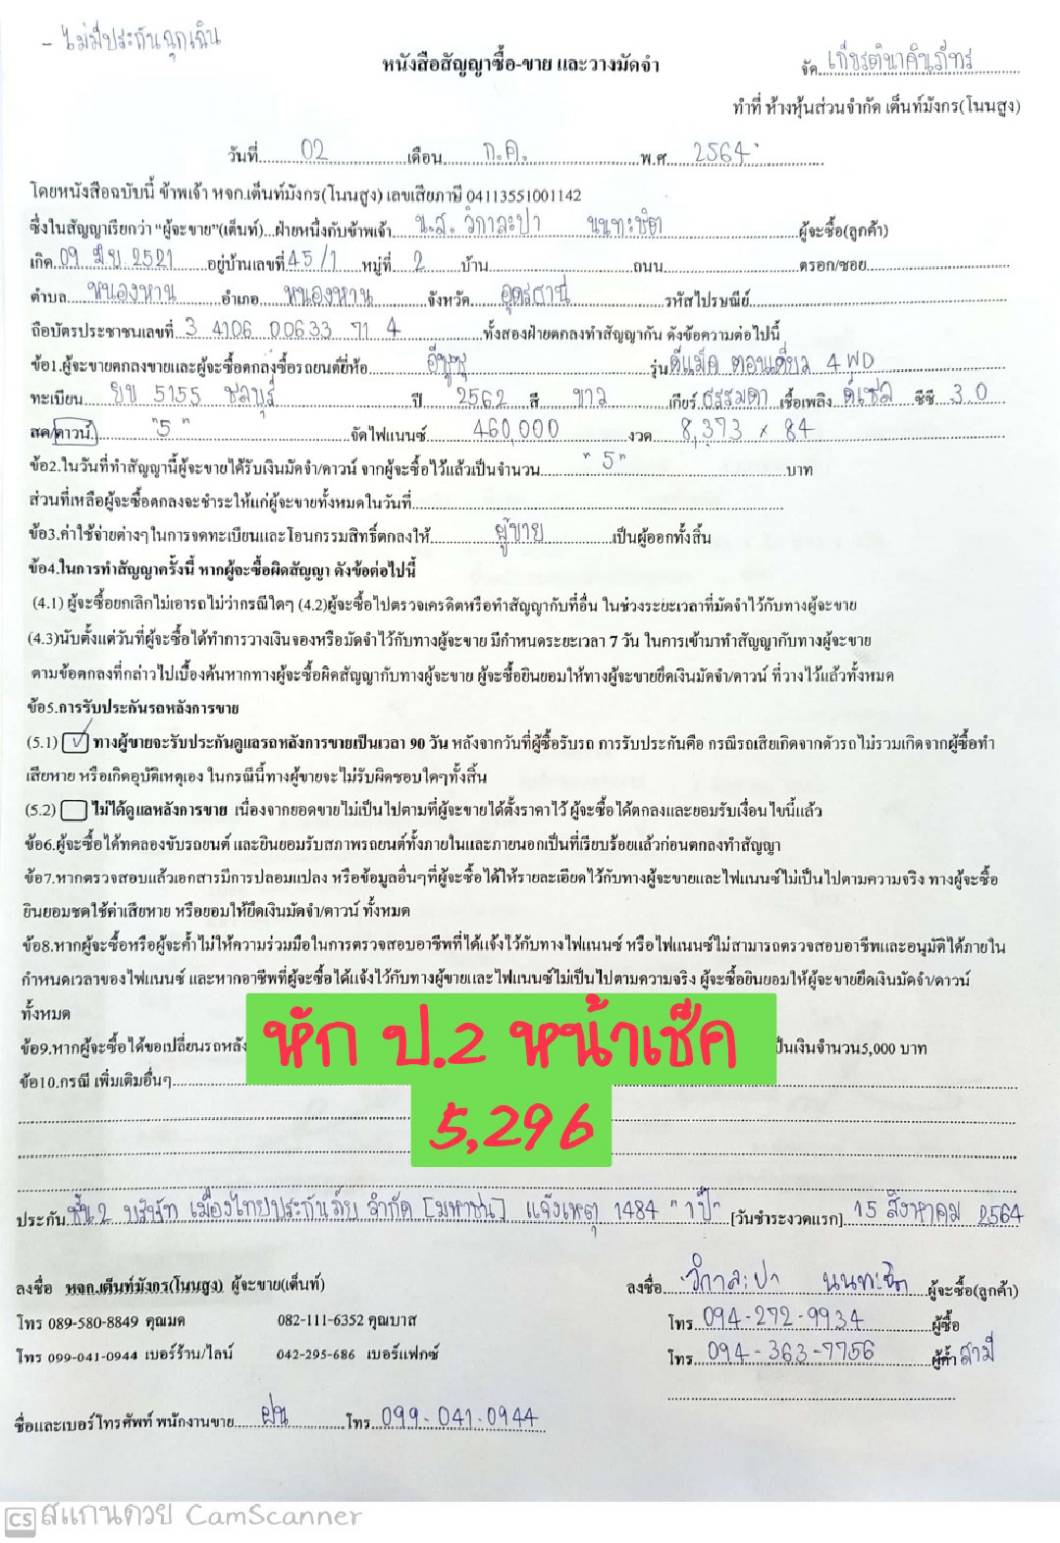 - ไม่มีประกันฉุกเฉิน
หนังสือสัญญาซื้อ-ขาย และวางมัดจำ
จัด เกียรตินาคินภัทร
ทำที่ ห้างหุ้นส่วนจำกัด เต็นท์มังกร(โนนสูง)
วันที่ 02 เดือน ก.ค. พ.ศ 2564
โดยหนังสือฉบับนี้ ข้าพเจ้า หจก.เต็นท์มังกร(โนนสูง) เลขเสียภาษี 04113551001142
ซึ่งในสัญญาเรียกว่า "ผู้จะขาย"(เต็นท์)...ฝ่ายหนึ่งกับข้าพเจ้า น.ส. วิกาละปา นนทะชิต ผู้จะซื้อ(ลูกค้า)
เกิด 09 มิ.ย. 2521 อยู่บ้านเลขที่ 45/1 หมู่ที่ 2 บ้าน ถนน ตรอก/ซอย
ตำบล หนองหาน อำเภอ หนองหาน จังหวัด อุดรธานี รหัสไปรษณีย์
ถือบัตรประชาชนเลขที่ 3 4106 00633 71 4 ทั้งสองฝ่ายตกลงทำสัญญากัน ดังข้อความต่อไปนี้
ข้อ1.ผู้จะขายตกลงขายและผู้จะซื้อตกลงซื้อรถยนต์ยี่ห้อ อีซูซุ รุ่น ดีแม็ค ตอนเดียว 4WD
ทะเบียน ยข 5155 ชลบุรี ปี 2562 สี ขาว เกียร์ ธรรมดา เชื้อเพลิง ดีเซล ซีซี 3.0
สด/ดาวน์ "5" จัดไฟแนนซ์ 460,000 งวด 8,373 x 84
ข้อ2.ในวันที่ทำสัญญานี้ผู้จะขายได้รับเงินมัดจำ/ดาวน์ จากผู้จะซื้อไว้แล้วเป็นจำนวน "5" บาท
ส่วนที่เหลือผู้จะซื้อตกลงจะชำระให้แก่ผู้จะขายทั้งหมดในวันที่
ข้อ3.ค่าใช้จ่ายต่างๆในการจดทะเบียนและโอนกรรมสิทธิ์ตกลงให้ ผู้ขาย เป็นผู้ออกทั้งสิ้น
ข้อ4.ในการทำสัญญาครั้งนี้ หากผู้จะซื้อผิดสัญญา ดังข้อต่อไปนี้
(4.1) ผู้จะซื้อยกเลิกไม่เอารถไม่ว่ากรณีใดๆ (4.2)ผู้จะซื้อไปตรวจเครดิตหรือทำสัญญากับที่อื่น ในช่วงระยะเวลาที่มัดจำไว้กับทางผู้จะขาย
(4.3)นับตั้งแต่วันที่ผู้จะซื้อได้ทำการวางเงินจองหรือมัดจำไว้กับทางผู้จะขาย มีกำหนดระยะเวลา 7 วัน ในการเข้ามาทำสัญญากับทางผู้จะขาย
ตามข้อตกลงที่กล่าวไปเบื้องต้นหากทางผู้จะซื้อผิดสัญญากับทางผู้จะขาย ผู้จะซื้อยินยอมให้ทางผู้จะขายยึดเงินมัดจำ/ดาวน์ ที่วางไว้แล้วทั้งหมด
ข้อ5.การรับประกันรถหลังการขาย
(5.1) ✓ ทางผู้ขายจะรับประกันดูแลรถหลังการขายเป็นเวลา 90 วัน หลังจากวันที่ผู้ซื้อรับรถ การรับประกันคือ กรณีรถเสียเกิดจากตัวรถไม่รวมเกิดจากผู้ซื้อทำ
เสียหาย หรือเกิดอุบัติเหตุเอง ในกรณีนี้ทางผู้ขายจะไม่รับผิดชอบใดๆทั้งสิ้น
(5.2) ไม่ได้ดูแลหลังการขาย เนื่องจากยอดขายไม่เป็นไปตามที่ผู้จะขายได้ตั้งราคาไว้ ผู้จะซื้อ ได้ตกลงและยอมรับเงื่อนไขนี้แล้ว
ข้อ6.ผู้จะซื้อได้ทดลองขับรถยนต์ และยินยอมรับสภาพรถยนต์ทั้งภายในและภายนอกเป็นที่เรียบร้อยแล้วก่อนตกลงทำสัญญา
ข้อ7.หากตรวจสอบแล้วเอกสารมีการปลอมแปลง หรือข้อมูลอื่นๆที่ผู้จะซื้อได้ให้รายละเอียดไว้กับทางผู้จะขายและไฟแนนซ์ไม่เป็นไปตามความจริง ทางผู้จะซื้อ
ยินยอมชดใช้ค่าเสียหาย หรือยอมให้ยึดเงินมัดจำ/ดาวน์ ทั้งหมด
ข้อ8.หากผู้จะซื้อหรือผู้จะค้ำไม่ให้ความร่วมมือในการตรวจสอบอาชีพที่ได้แจ้งไว้กับทางไฟแนนซ์ หรือไฟแนนซ์ไม่สามารถตรวจสอบอาชีพและอนุมัติได้ภายใน
กำหนดเวลาของไฟแนนซ์ และหากอาชีพที่ผู้จะซื้อได้แจ้งไว้กับทางผู้ขายและไฟแนนซ์ไม่เป็นไปตามความจริง ผู้จะซื้อยินยอมให้ผู้จะขายยึดเงินมัดจำ/ดาวน์
ทั้งหมด
ข้อ9.หากผู้จะซื้อได้ขอเปลี่ยนรถหลัง ป็นเงินจำนวน5,000 บาท
หัก ป.2 หน้าเช็ค
ข้อ10.กรณี เพิ่มเติมอื่นๆ
5,296
ประกัน ชั้น.2 บริษัท เมืองไทยประกันภัย จำกัด [มหาชน] แจ้งเหตุ 1484 "1ปี" [วันชำระงวดแรก] 15 สิงหาคม 2564
ลงชื่อ หจก.เต็นท์มังกร(โนนสูง) ผู้จะขาย(เต็นท์)
ลงชื่อ วิกาละปา นนทะชิต ผู้จะซื้อ(ลูกค้า)
โทร 089-580-8849 คุณมด 082-111-6352 คุณบาส
โทร 094-272-9934 ผู้ซื้อ
โทร 099-041-0944 เบอร์ร้าน/ไลน์ 042-295-686 เบอร์แฟกซ์
โทร 094-363-7756 ผู้ค้ำ สามี
ชื่อและเบอร์โทรศัพท์ พนักงานขาย ฝน โทร 099-041-0944
CS สแกนด้วย CamScanner